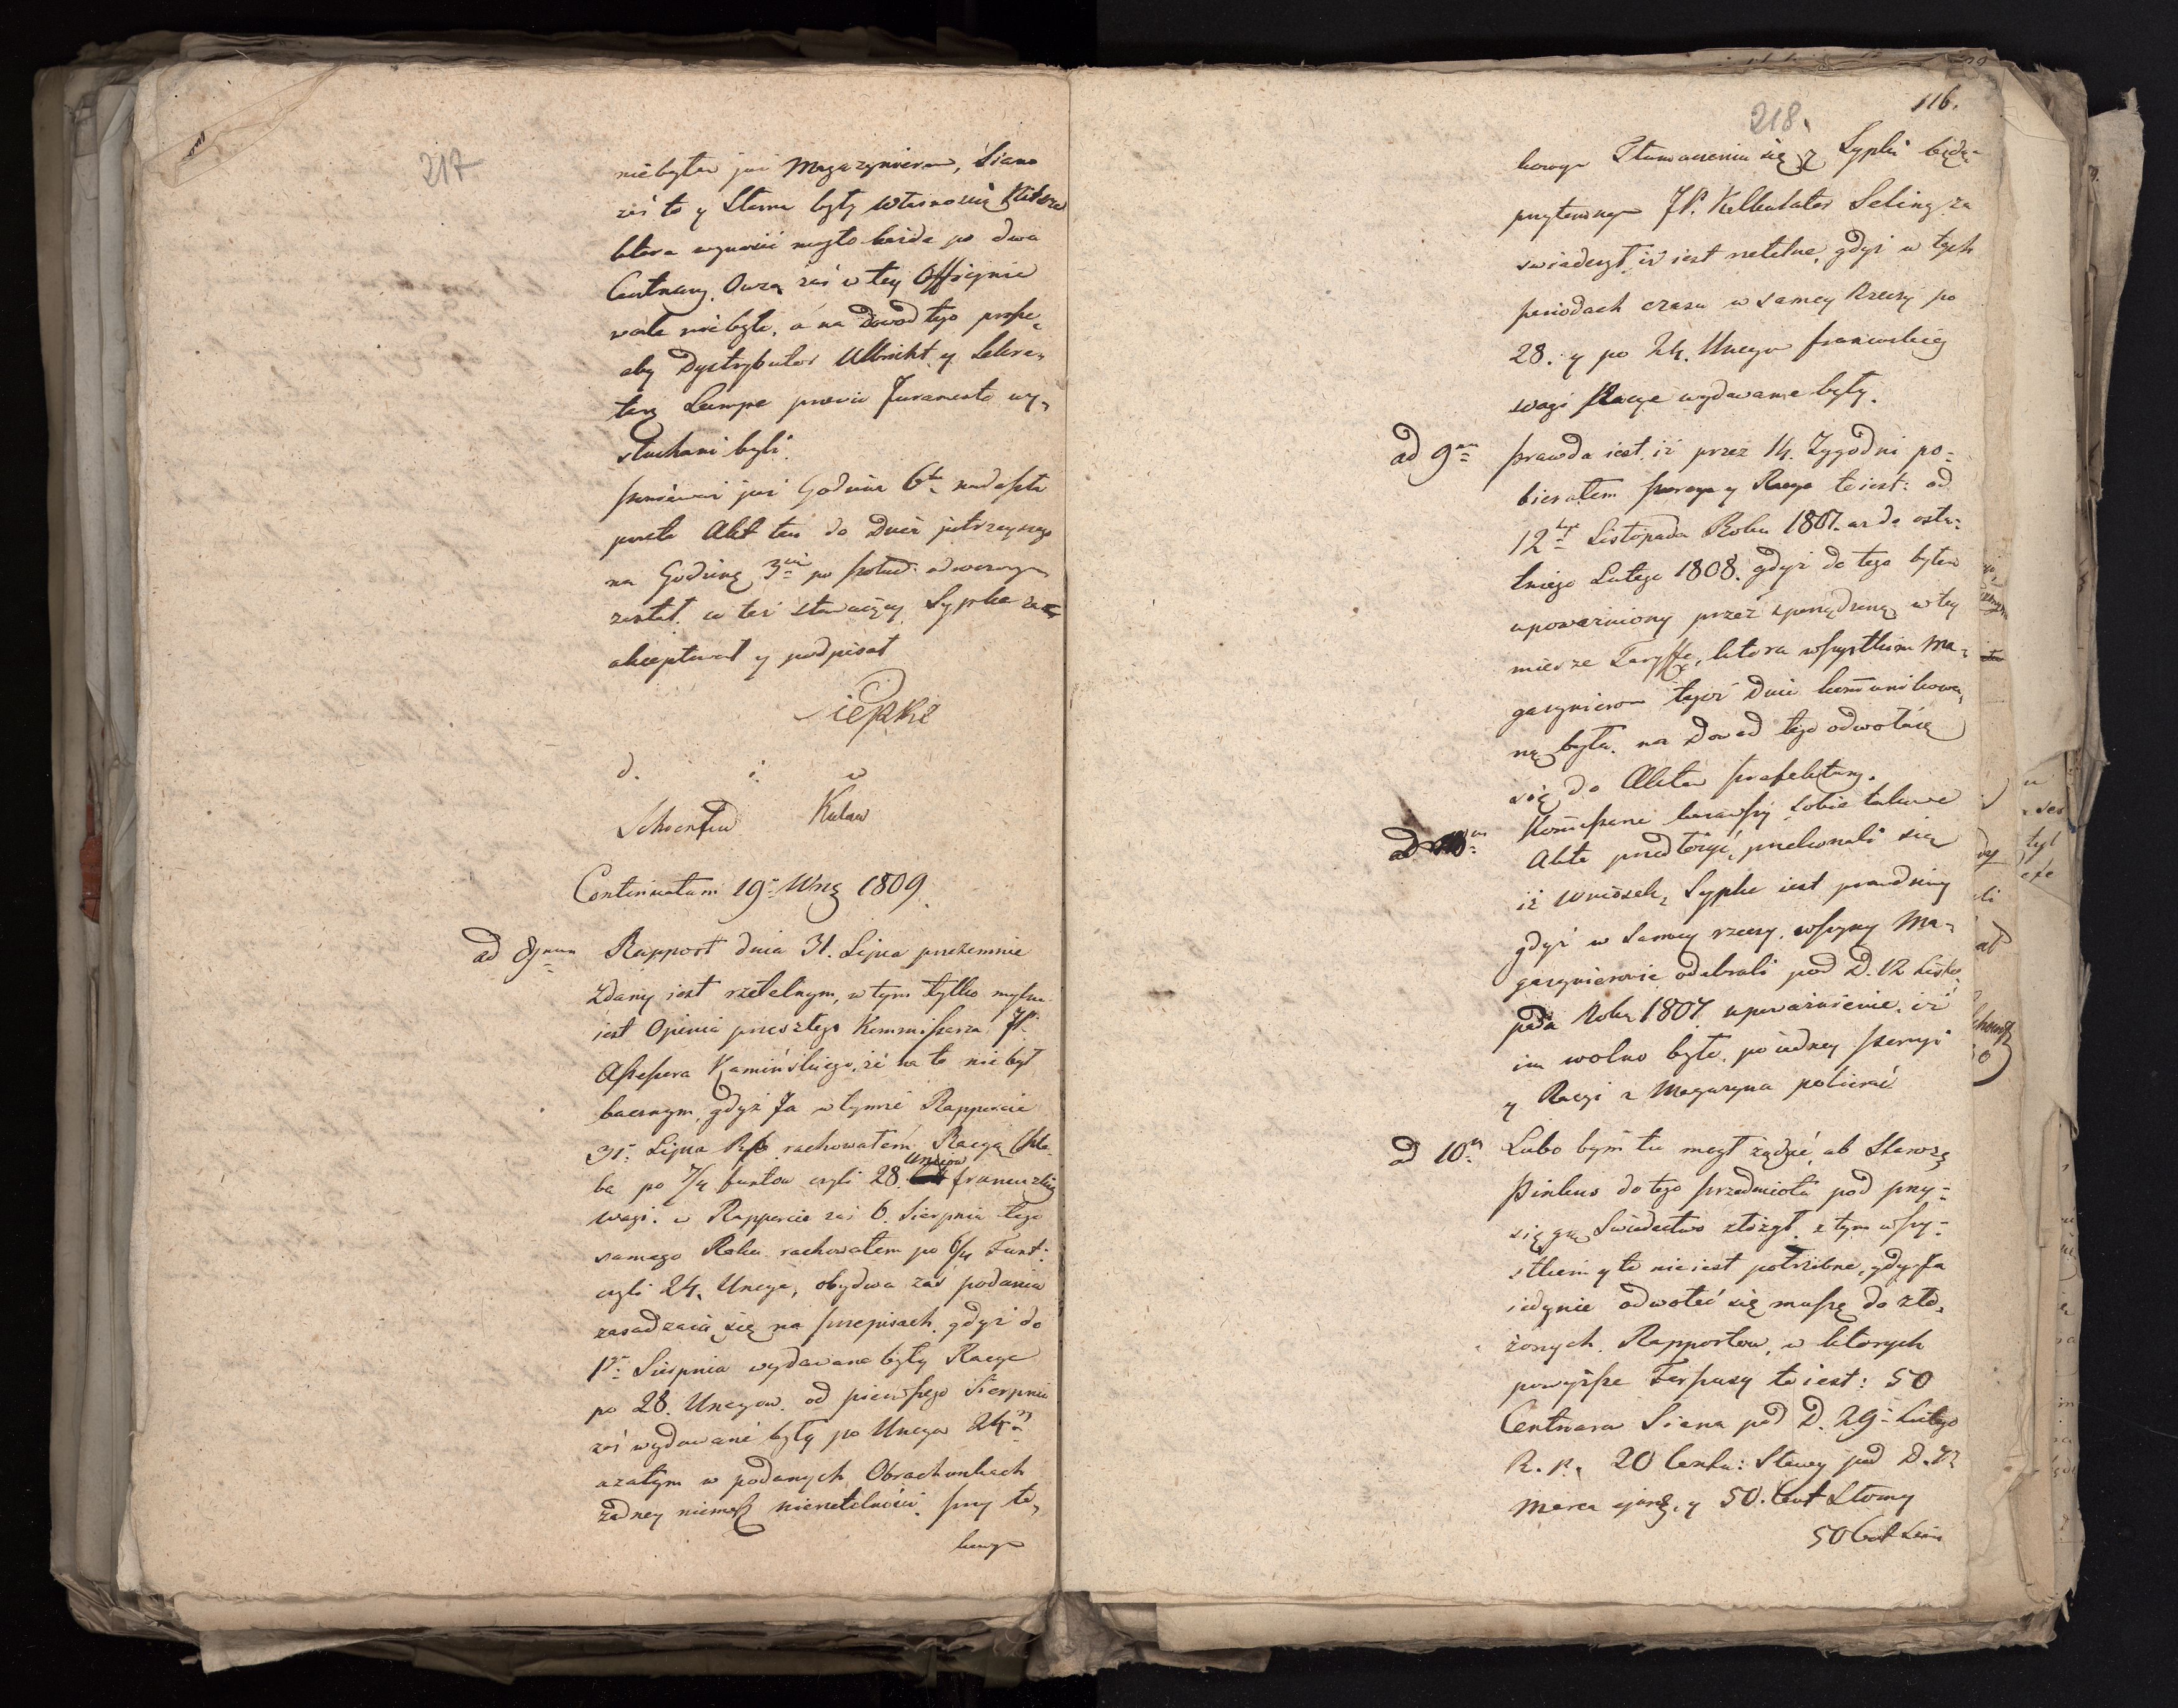 217
niebyłem już Magazynierem, Siano
zaś to y Słoma były własnością
ktora wynosić mogło każda po dwa
Centnary. Owsa zaś w tey Officynie
wcale niebyło, a na dowod tego prosze
aby Dystrybutor Ulbricht y Sekre„
tarz Lampe previo Juramento wy„
słuchani byli.
ponieważ już Godzina 6ta nadeszła
przeto Akt ten do Dnia jutrzeyszego
na Godzinę 3cią po połud: odroczonym
został, co też stawaiący Sypke za„
akceptował y podpisał
Siepke
d. i. w
Kulaw
Continuatum 19: Wrz 1809.
ad 8vum Rapport dnia 31. Lipca przezemnie
zdany iest rzetelnym, w tym tylko mylna
iest Opinia przeszłego Kommissarza JP.
Assessora Kamińskiego, że na to nie był
bacznym, gdyż Ja w tymże Rapporcie
31: Lipca rachowałem Racyą Chle„
ba po 7/4 funtow czyli 28. Uncyow francuzkiey
wagi. w Rapporcie zaś 6. Sierpnia tego
samego Roku rachowałem po 6/4 Funt:
czyli 24. Uncye, obydwa zaś podania
zasadzaią się na przepisach gdyż do
1go Sierpnia wydawane były Racye
po 28. Uncyow. od pierwszego Sierpnia
zaś wydawane były po Uncyow 24.
azatym w podanych Obrachunkach
żadney niemasz nierzetelności. przy ta„
kowym
218. 116.
kowym Tłumaczeniu się Sypki będą„
przytomnym JP. Kalkulator Seling za„
swiadczył iż iest rzetelne, gdyż w tych
periodach czasu w samey Rzeczy po
28. y po 24. Uncyow francuskiey
wagi Racye wydawane były.
ad 9um prawda iest iż przez 14. Tygodni po„
bierałem porcye y Racye to iest: od
12go Listopada Roku 1807. aż do osta„
tniego Lutego 1808. gdyż do tego byłem
upoważniony przez sporządzoną w tey
mierze Taryffę, ktora wszystkim Ma„
gazynierom tegoż dnia kom̄unikowa„
ną była. na Dowod tego odwołuię
się do Aktow prefektury.
Kom̄issarze kazawszy sobie takowe
Akta przedłożyć, przekonali się
iż wniosek Sypke iest prawdziwy
gdyż w samey rzeczy wszyscy Ma„
gazynierowie odebrali pod D. 12 Listo
pada Roku 1807. upoważnienie, iż
im wolno było, po iedney porcyi
y Racyi z Magazynu pobierać
ad 10m Lubo bym tu mogł żądać, ab Starozą
Pinkus do tego przedmiotu pod przy„
sięgą Swiadectwo złożył. z tym wszy„
stkiem y to nie iest potrzebne, gdy Ja
iedynie odwołać się muszę do zło„
żonych Rapportow, w ktorych
powyższe Forszusy to iest: 50
Centnara Siana pod D. 29: Lutego
R. p. 20 Centn: Słomy pod D. 12
Marca y 50. Cent Słomy
50 Cent Siana